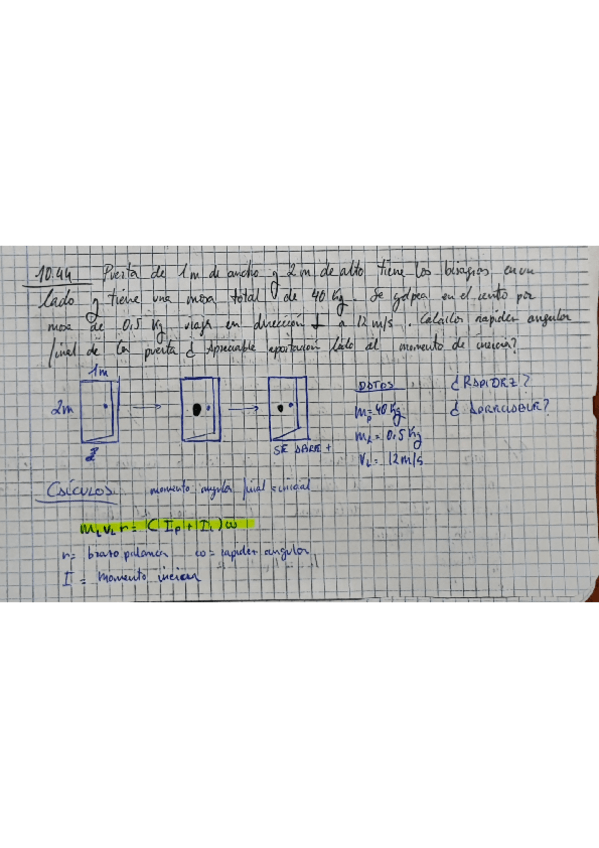 10.44 Puerta de 1m de ancho y 2m de alto tiene las bisagras en un
lado y tiene una masa total de 40 Kg. Se golpea en el centro por
masa de 0,5 Kg viaja en dirección ⊥ a 12 m/s. Calcular rapidez angular
final de la puerta ¿ Apreciable aportación lodo al momento de inercia?
1m
2m
SE ABRE +
DATOS
¿RAPIDEZ?
mp = 40 Kg
mL = 0,5 Kg
vL = 12 m/s
CÁLCULOS momento angular final = inicial
mL vL r = ( Ip + IL ) ω
r = brazo palanca ω = rapidez angular
I = momento inercia